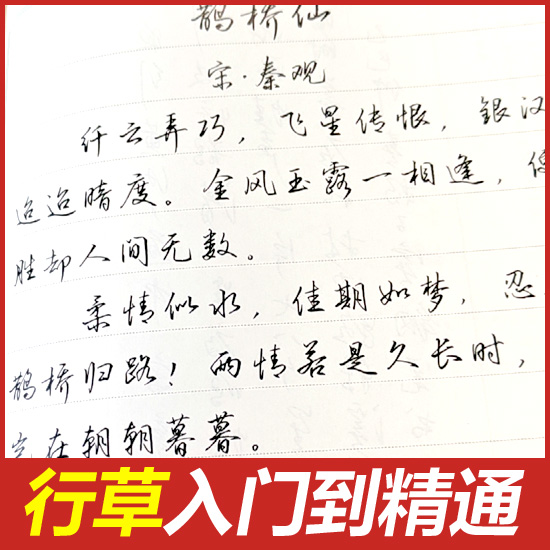 鹊桥仙
宋·秦观
纤云弄巧，飞星传恨，銀汉
迢迢暗度。金风玉露一相逢，便
胜却人间无数。
柔情似水，佳期如梦，忍
鹊桥归路！两情若是久长时，
在朝朝暮暮。
行草入门到精通